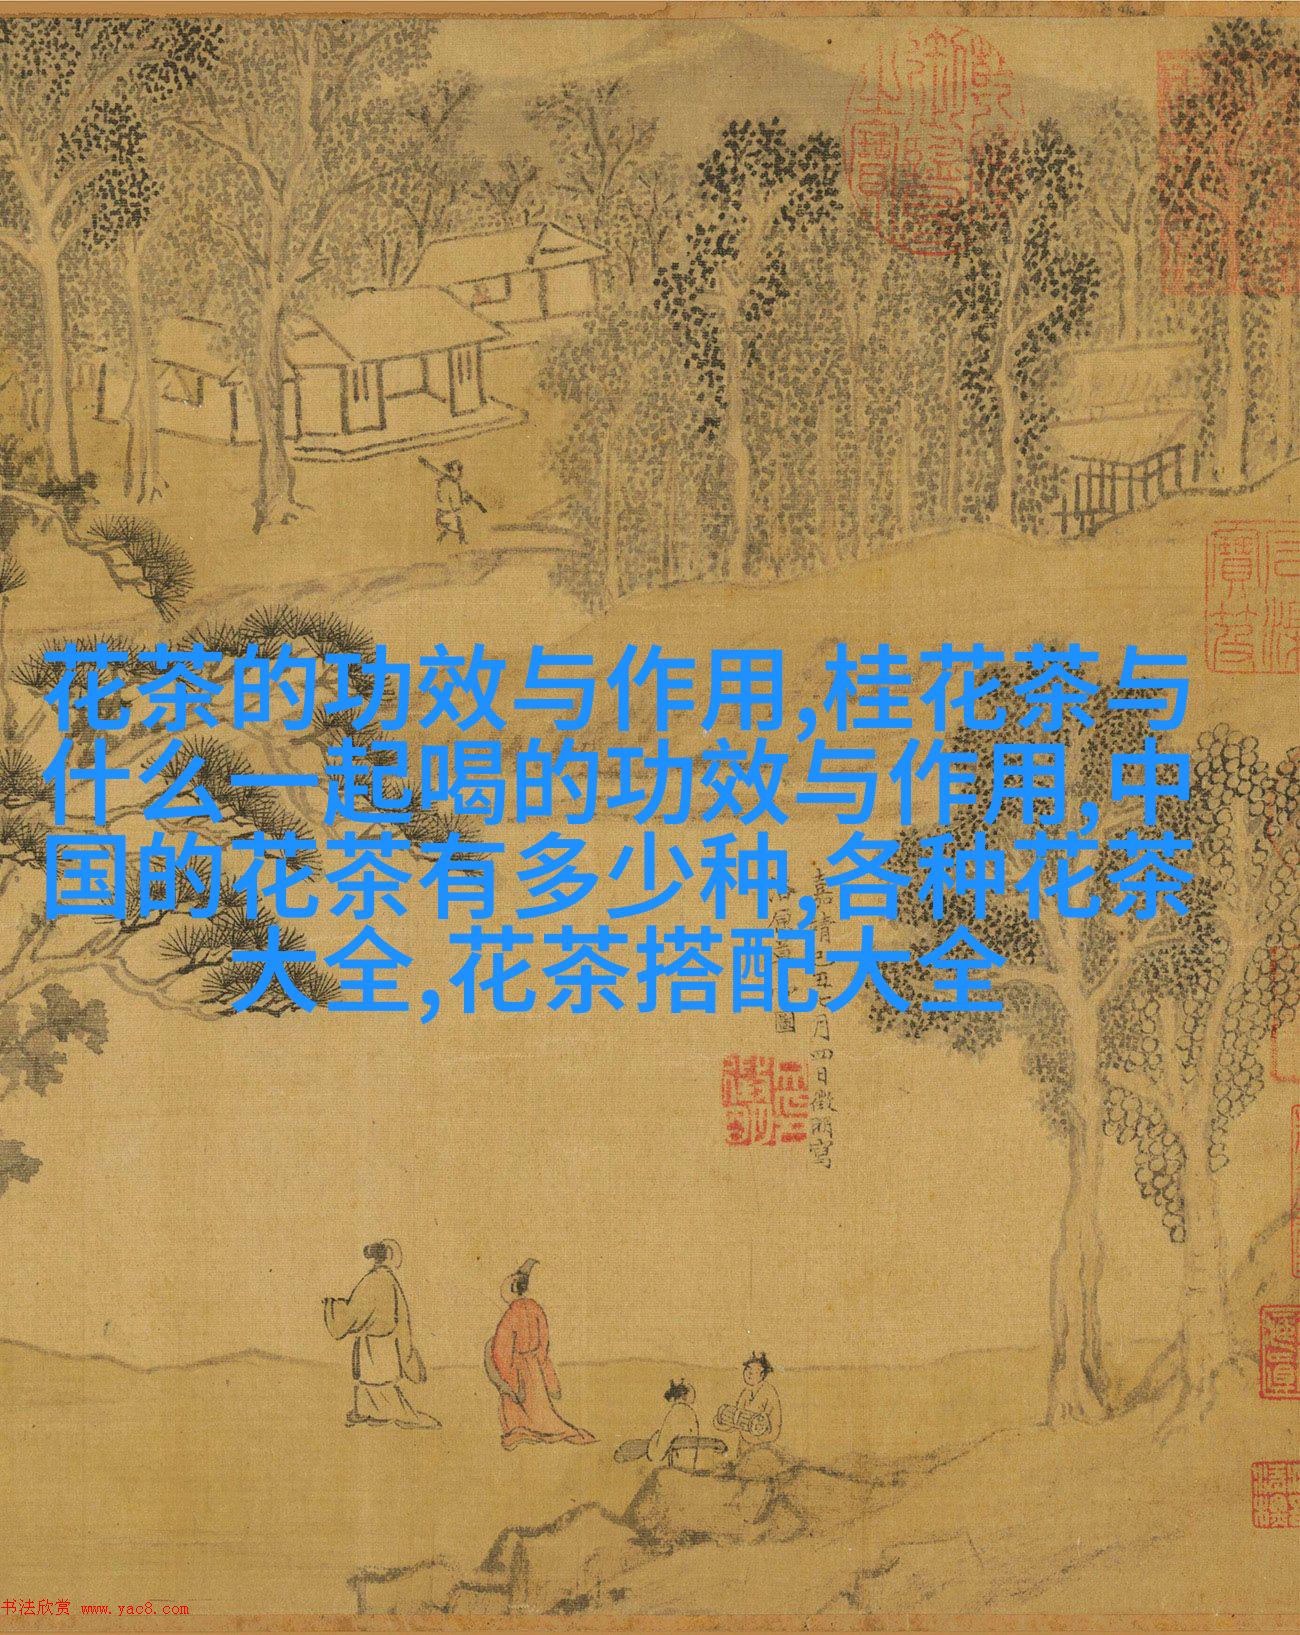 花茶的功效与作用,桂花茶与
什么一起喝的功效与作用,中
国的花茶有多少种,各种花茶
大全,花茶搭配大全
四日徵明寫
书法欣赏 www.yac8.com